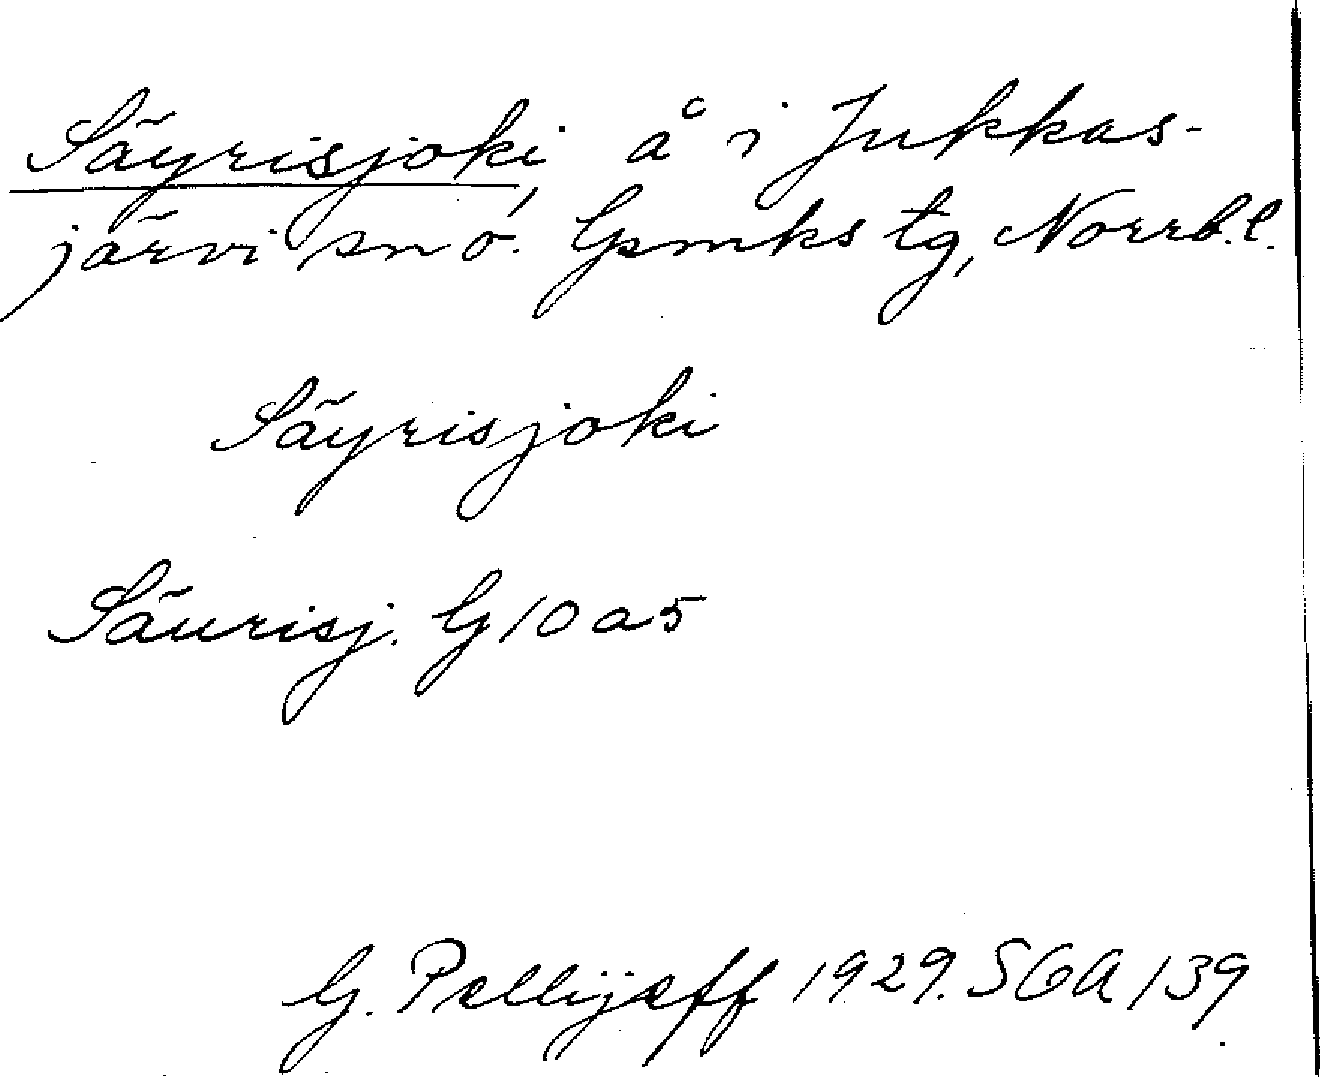 Säyrisjoki, å i Jukkas-
järvi sn o. Gsmks tg, Norrb. l.
Säyrisjoki
Säurisj. G 10 a 5
G. Pellijeff 1929. SGA 139.